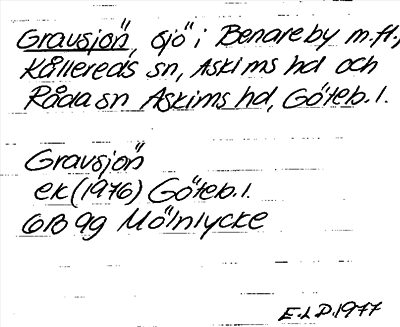 Gravsjön, sjö i Benareby m.fl.,
Kållereds sn, Askims hd och
Råda sn Askims hd, Göteb. l.
Gravsjön
ek (1976) Göteb. l.
6B 9g Mölnlycke
E.L.D. 1977